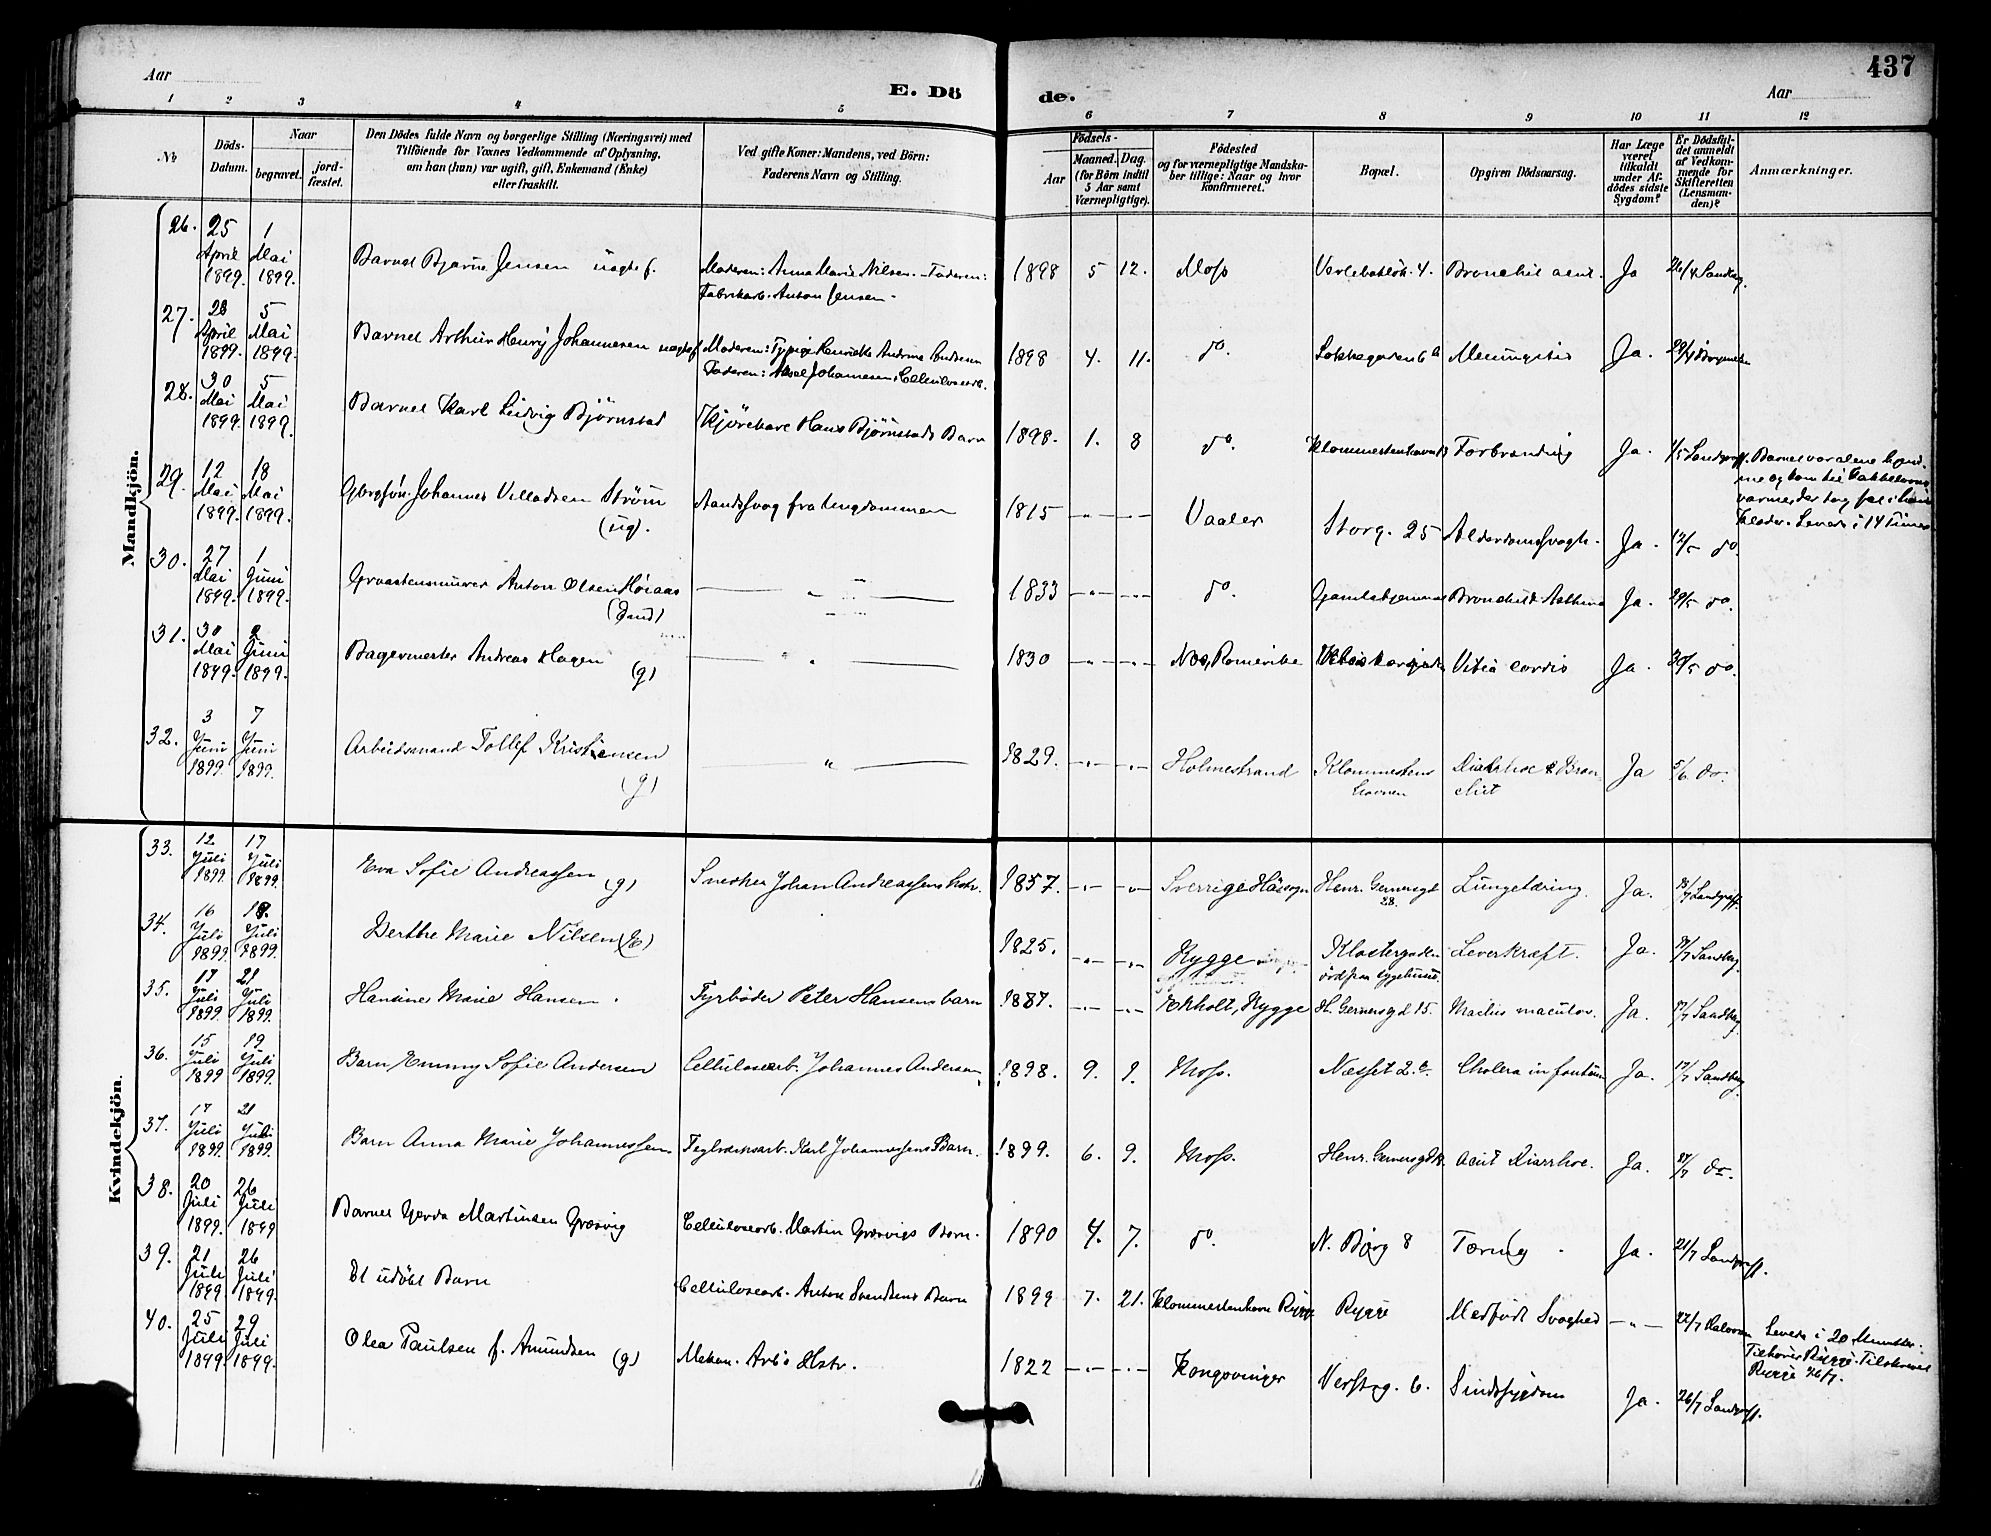 437
Aar
E. Dö
de.
Aar
1 2 3 4 5 6 7 8 9 10 11 12
No
Döds-
Datum.
Naar
begravet.
jord-
fæstet.
Den Dödes fulde Navn og borgerlige Stilling (Næringsvei) med
Tilföiende for Voxnes Vedkommende af Oplysning,
om han (hun) var ugift, gift, Enkemand (Enke)
eller fraskilt.
Ved gifte Koner: Mandens, ved Börn:
Faderens Navn og Stilling.
Födsels-
Aar
Maaned. Dag.
(for Börn indtil
5 Aar samt
Værnepligtige).
Födested
og for værnepligtige Mandska-
ber tillige: Naar og hvor
konfirmeret.
Bopæl.
Opgiven Dödsaarsag.
Har Læge
været
tilkaldt
under Af-
dödes sidste
Sygdom?
Er Dödsfal-
det anmeldt
af Vedkom-
mende for
Skifteretten
(Lensman-
den)?
Anmærkninger.
Mandkjön.
26. 25 April 1899. 1 Mai 1899. Barnet Bjarne Jensen uægte f. Moderen: Anna Marie Nilsen. Faderen:
Fabrikarb. Anton Jensen. 1898 5 12. Moss 4. Bronchit acut. Ja 26/4
27. 28 April 1899. 5 Mai 1899. Barnet Arthur Henry Johannesen uægte f. Moderen: Henriette
Faderen: Aksel Johannesen, Cellulosearb. 1898 4. 11. do. Meningitis Ja. 29/4
28. 30 Mai 1899. 5 Mai 1899. Barnet Karl Ludvig Björnstad Kjörekare Hans Björnstads Barn 1898. 1. 8 do. Klommestenhavn Forbrænding Ja. 1/5 Barnet var alene
varme, der tog
Klæder. Levede i 14 Timer
29. 12 Mai 1899. 18 Mai 1899. Johannes Villadsen Ström
(ug). Aandssvag fra Ungdommen 1815 -"- -"- Vaaler Storg. 25 Alderdomssvagh. Ja. 12/5 do.
30. 27 Mai 1899. 1 Juni 1899. Graastensmurer Anton Olsen
" 1833 -"- -"- do. Ja. 29/5 do.
31. 30 Mai 1899. 2 Juni 1899. Bagermester Andreas Hagen
(g) " 1830 -"- -"- Nes, Romerike Vitia cordis Ja. 30/5 do.
32. 3 Juni 1899. 7 Juni 1899. Arbeidsmand Tollef Kristiansen
(g) " 1829. -"- -"- Holmestrand Klommestens
havnen Diarrhoe & Bron-
chit Ja 5/6 do.
Kvindekjön.
33. 12 Juli 1899. 17 Juli 1899. Eva Sofie Andreassen (g) Snedker Johan Andreassens hstr. 1857. -"- -"- Sverrige Henr. Gernersgd
28. Lungetæring. Ja.
34. 16 Juli 1899. 18. Juli 1899. Berthe Marie Nilsen (E) 1825. -"- -"- Rygge Klostergaden
Leverkræft. Ja. Sandberg.
35. 17 Juli 1899. 21 Juli 1899. Hansine Marie Hansen. Fyrböder Peter Hansens barn 1887. -"- -"- Ekholt, Rygge H. Gernersgd 15. maculos. Ja. 17/7 Sandberg.
36. 15 Juli 1899 19 Juli 1899. Barn Emmy Sofie Andersen Cellulosearb. Johannes Andersen 1898. 9. 9. Moss. Næsset 2. Cholera infantum Ja. 17/7 Sandberg.
37. 17 Juli 1899. 21 Juli 1899. Barn Anna Marie Johannessen Teglværksarb. Karl Johannessens Barn. 1899. 6. 9. Moss. Henr. Gernersgd Acut Diarrhoe. Ja. do.
38. 20 Juli 1899. 26 Juli 1899 Barnet Gerda Martinsen Græsvig Cellulosearb. Martin Græsvigs Barn. 1890 4. 7. do. N. Bjerg 8 Tæring Ja. 21/7
39. 21 Juli 1899. 26 Juli 1899. Et udöbt Barn Cellulosearb. Anton Svendsens Barn 1899 7. 21. Klommestenhavn Rygge Rygge Medfödt Svaghed -"- 22/7 Levede i 20 Minutter.
Tilhörer Rygge. Tilskrevet
Rygge 26/7.
40. 25 Juli 1899. 29 Juli 1899. Olea Paulsen f. Amundsen (g) Mekan. Arb's Hstr. 1822 -"- -"- Kongsvinger 6. Sindssygdom Ja. 26/7